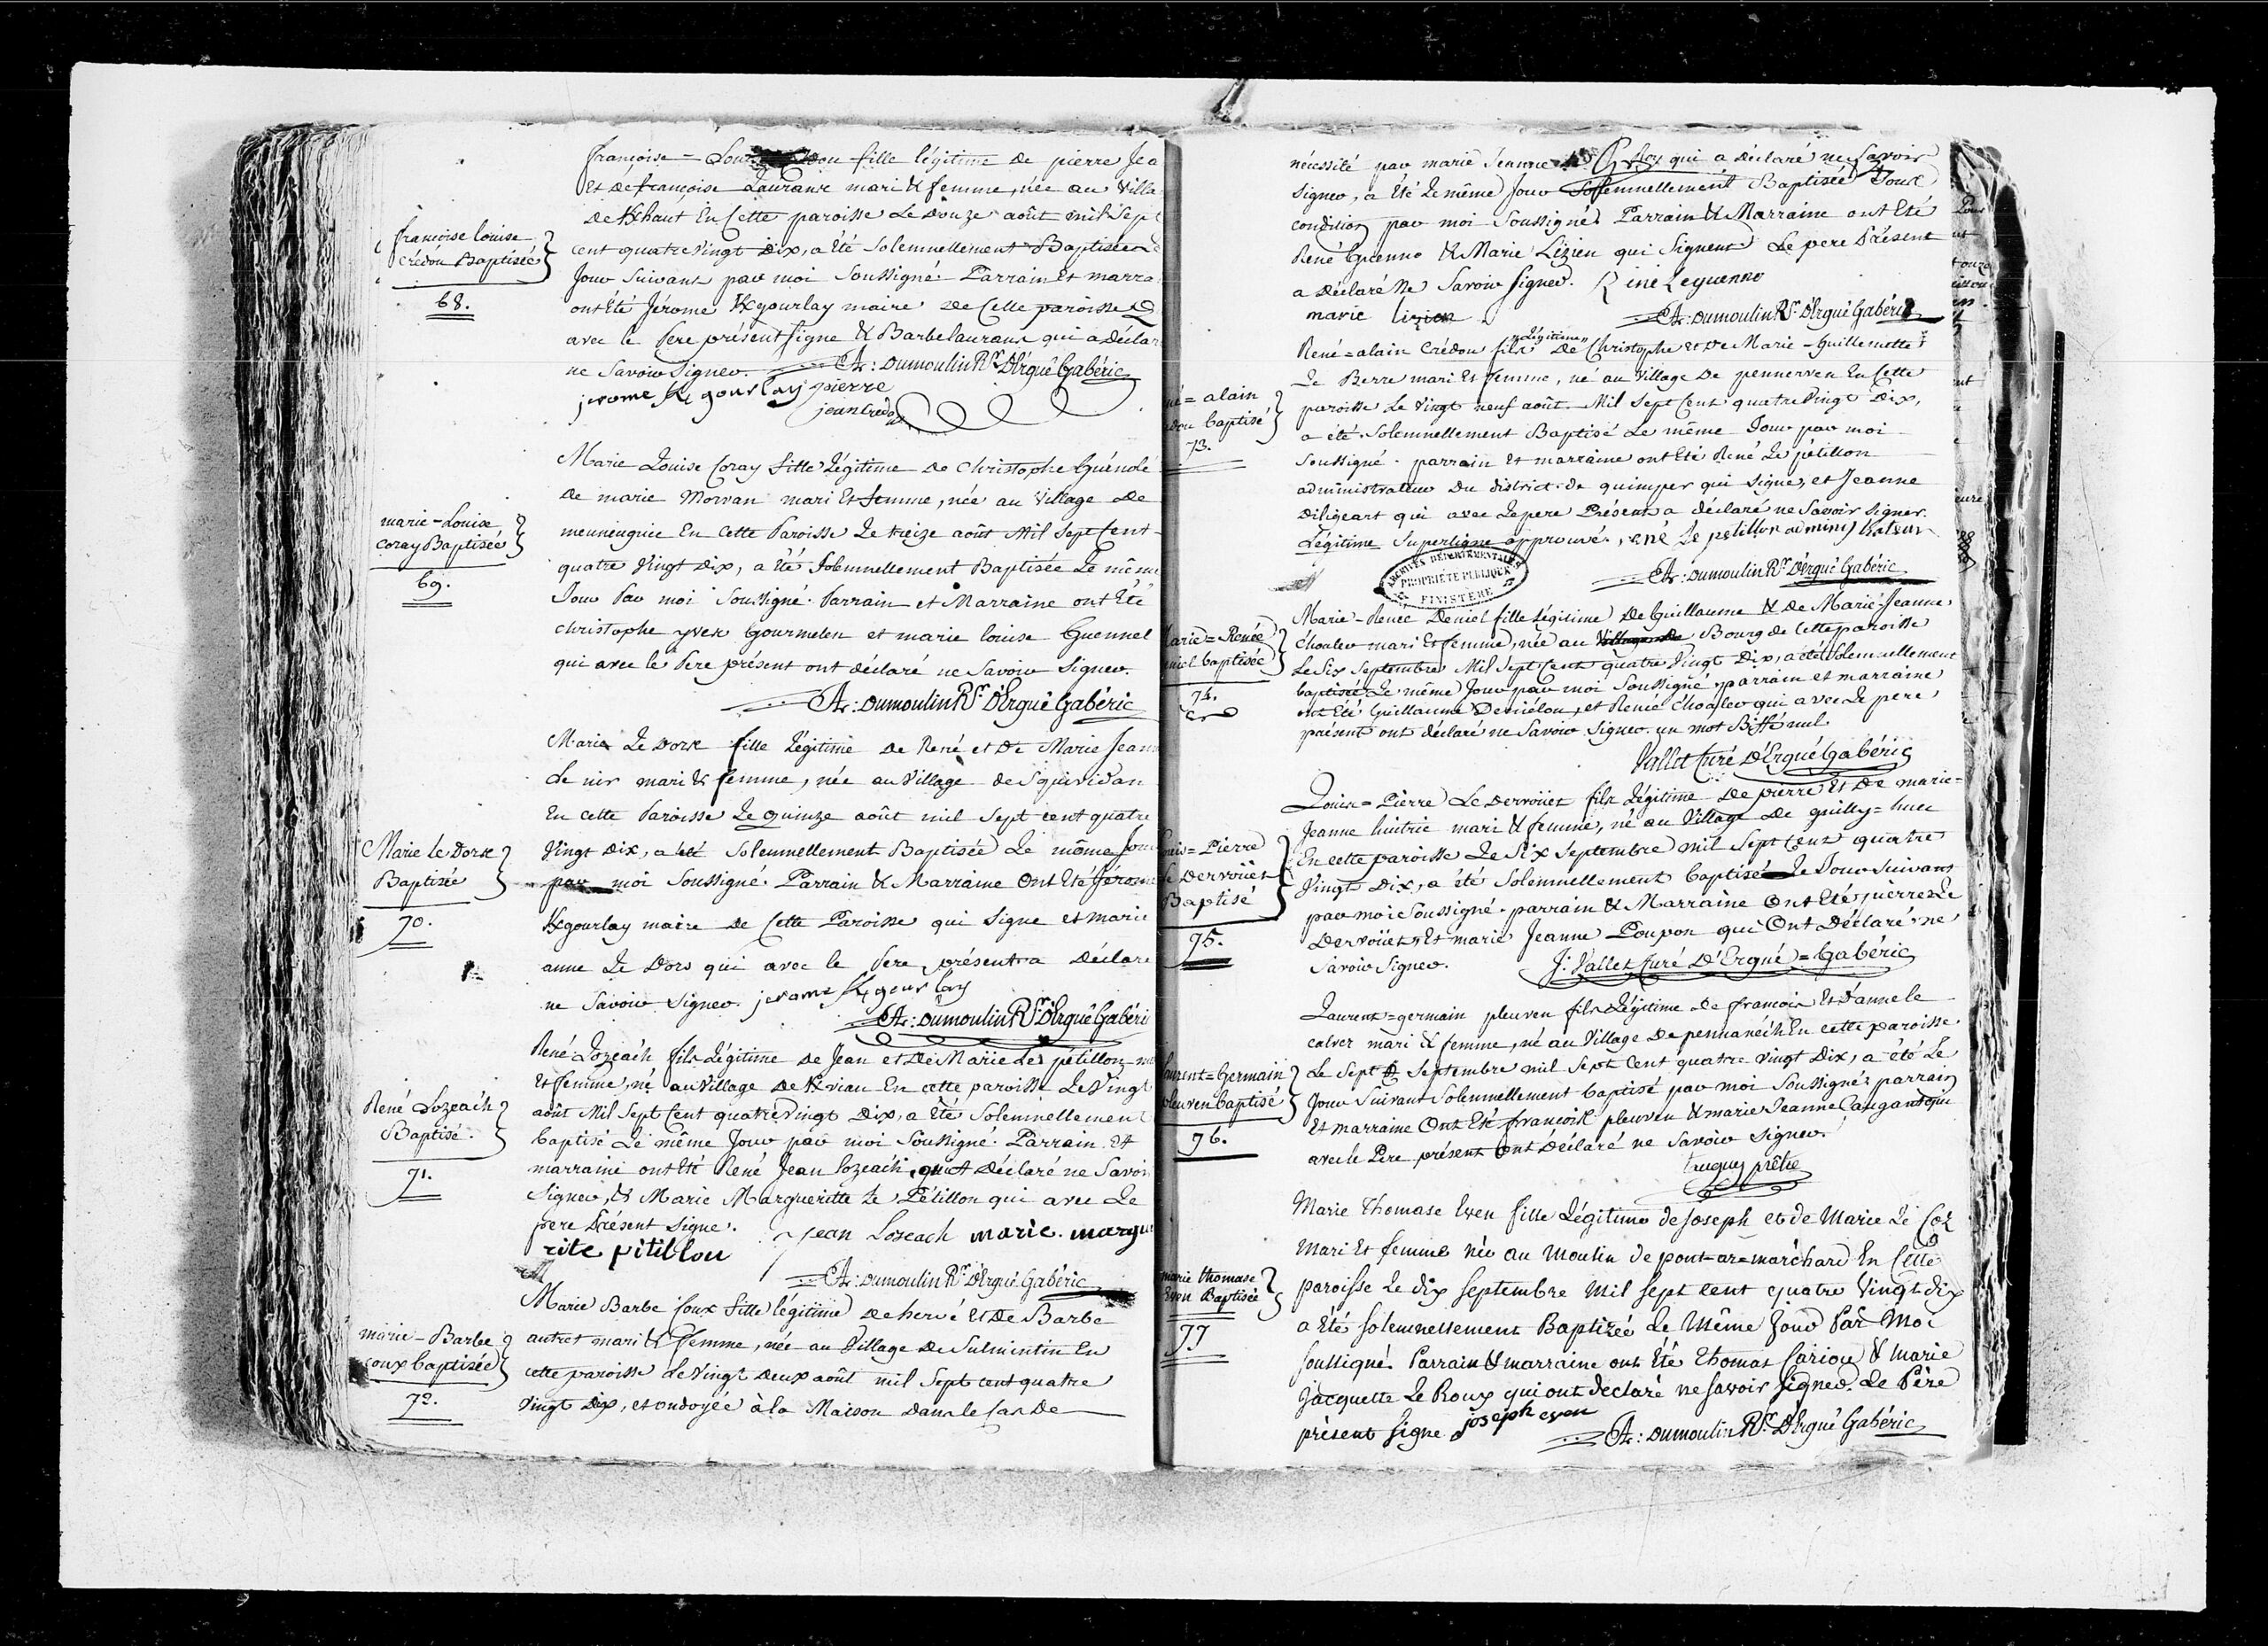 françoise louise
crédou Baptisée
68.
françoise = Louise Crédou fille légitime de pierre Jea
Et de françoise Laurans mari & femme, née au Villa
de Khaut En Cette paroisse Le Douze août mil Sept
cent quatre Vingt Dix, a Été Solemnellement Baptisée
Jour Suivant par moi Soussigné. Parrain Et marra
ont Été Jérome Kgourlay maire de Cette paroisse
avec le Pere présent signe & Barbe laurans qui a déclar
ne Savoir Signer. A: Dumoulin Rr D'Ergué Gabéric
jerome K gourlay pierre
jean Credou
marie = Louise
coray Baptisée
69.
Marie Louise Coray fille Légitime de Christophe Guénolé
de marie Morvan mari Et femme, née au Village de
En Cette Paroisse Le treize août Mil Sept Cent
quatre Vingt Dix, a Été Solemnellement Baptisée Le même
Jour Par moi Soussigné. Parrain et Marraine ont Été
christophe yves Gourmelen et marie louise Guennel
qui avec le Pere présent ont déclaré ne Savoir Signer.
A: Dumoulin Rr D'Ergué Gabéric
Marie le Dors
Baptisée
70.
Marie Le Dors fille Légitime de René et De Marie Jean
Le nir mari & femme, née au Village de Squividan
En cette Paroisse Le quinze août mil Sept cent quatre
Vingt Dix, a été Solemnellement Baptisée Le même Jour
par moi Soussigné. Parrain & Marraine Ont Été Jérome
Kgourlay maire de Cette Paroisse qui Signe et marie
anne Le Dors qui avec le Pere présent a Déclaré
ne Savoir Signer. jerome K gourlay
A: Dumoulin Rr D'Ergué Gabéri
René Lozeach
Baptisé.
71.
René Lozeach fils Légitime de Jean et De Marie Le pétillon
Et femme, né au Village de En cette paroisse Le Vingt
août Mil Sept Cent quatre Vingt Dix, a Été Solemnellement
baptisé Le même Jour par moi Soussigné. Parrain Et
marraine ont Été René Jean lozeach, qui A Déclaré ne Savoir
Signer, & Marie Margueritte Le Pétillon qui avec Le
pere Présent Signe. jean Lozeach marie. margue
rite pitiblou
A: Dumoulin Rr D'Ergué Gabéric
marie = Barbe
coux baptisée
72.
Marie Barbe Coux fille légitime De hervé Et De Barbe
autret mari & femme, née au Village De Sulvintin En
cette paroisse Le Vingt Deux août mil Sept cent quatre
Vingt Dix, et ondoyée à la Maison Dans le Cas De
nécessité par marie Jeanne qui a Déclaré ne Savoir
Signer, a Été Le même Jour Solemnellement Baptisée Sous
condition par moi Soussigné. Parrain & Marraine ont Été
René Guenno & Marie Lizien qui Signent Le pere Présent
a Déclaré Ne Savoir Signer. René Leguenno
marie lizien A: Dumoulin Rr D'Ergué Gabéric
né = alain
dou baptisé
73.
René = alain Crédou fils "Légitime" De Christophe et De Marie = Guillemette
Le Berre mari Et femme, né au Village De pennerven En Cette
paroisse Le Vingt neuf août Mil Sept Cent quatre Vingt Dix,
a été Solemnellement Baptisé Le même Jour par moi
Soussigné. parrain Et marraine ont Été René Le pétillon
administrateur Du District de quimper qui signe, et Jeanne
Diligeart qui avec Le pere Présent a déclaré ne Savoir Signer.
Légitime Superligne approuvé. rené le petillon administrateur
A: Dumoulin Rr D'Ergué Gabéric
ARCHIVES DÉPARTEMENTALES
PROPRIÉTÉ PUBLIQUE
FINISTÈRE
Marie = Renée
niel baptisée
74.
Marie = Renée Deniel fille Légitime De Guillaume & De Marie = Jeanne
Choaler mari Et femme, née au Village De Bourg de Cette paroisse
Le Six Septembre Mil Sept Cent quatre Vingt Dix, a été Solemnellement
baptisée Le même Jour par moi Soussigné. parrain et marraine
ont Été Guillaume Deniélou, et Renée Choaler qui avec Le pere
présent ont déclaré ne Savoir Signer. un mot Biffé nul.
Vallet Curé D'Ergué Gabéric
Louis = Pierre
Le Dervoüet
Baptisé
75.
Louis = Pierre Le Dervoüet fils Légitime De pierre Et De marie =
Jeanne huitric mari & femme, né au Village De quilly = huec
En cette paroisse Le Six Septembre mil Sept Cent quatre
Vingt Dix, a été Solemnellement baptisé Le Jour Suivant
par moi Soussigné. parrain & Marraine Ont Eté pierre Le
Dervoüet, Et marie Jeanne Poupon qui Ont Déclaré ne
Savoir Signer. J: Vallet Curé D'Ergué = Gabéric
Laurent = Germain
pleuven baptisé
76.
Laurent = germain pleuven fils Légitime De francois Et D'anne le
calvez mari & femme, né au Village De pennanéch En cette paroisse
Le Sept Septembre mil Sept Cent quatre Vingt Dix, a été Le
Jour Suivant Solemnellement baptisé par moi Soussigné. parrain
Et marraine Ont Été francois pleuven & marie Jeanne Caugant qui
avec le Pere présent Ont Déclaré ne Savoir Signer.
prêtre
marie thomase
Even Baptisée
77
Marie Thomase Even fille Légitime de Joseph et de Marie Le Coz
Mari Et femme Née au Moulin de pont-ar-marchard En Cette
paroisse Le dix Septembre Mil Sept cent quatre Vingt-dix
a Été Solemnellement Baptizée Le Même Jour Par Moi
Soussigné. Parrain & marraine ont Été Thomas Cariou & Marie
Jacquette Le Roux qui ont declaré ne savoir Signer. Le Père
présent signe. joseph even
A: Dumoulin Rr D'Ergué Gabéric